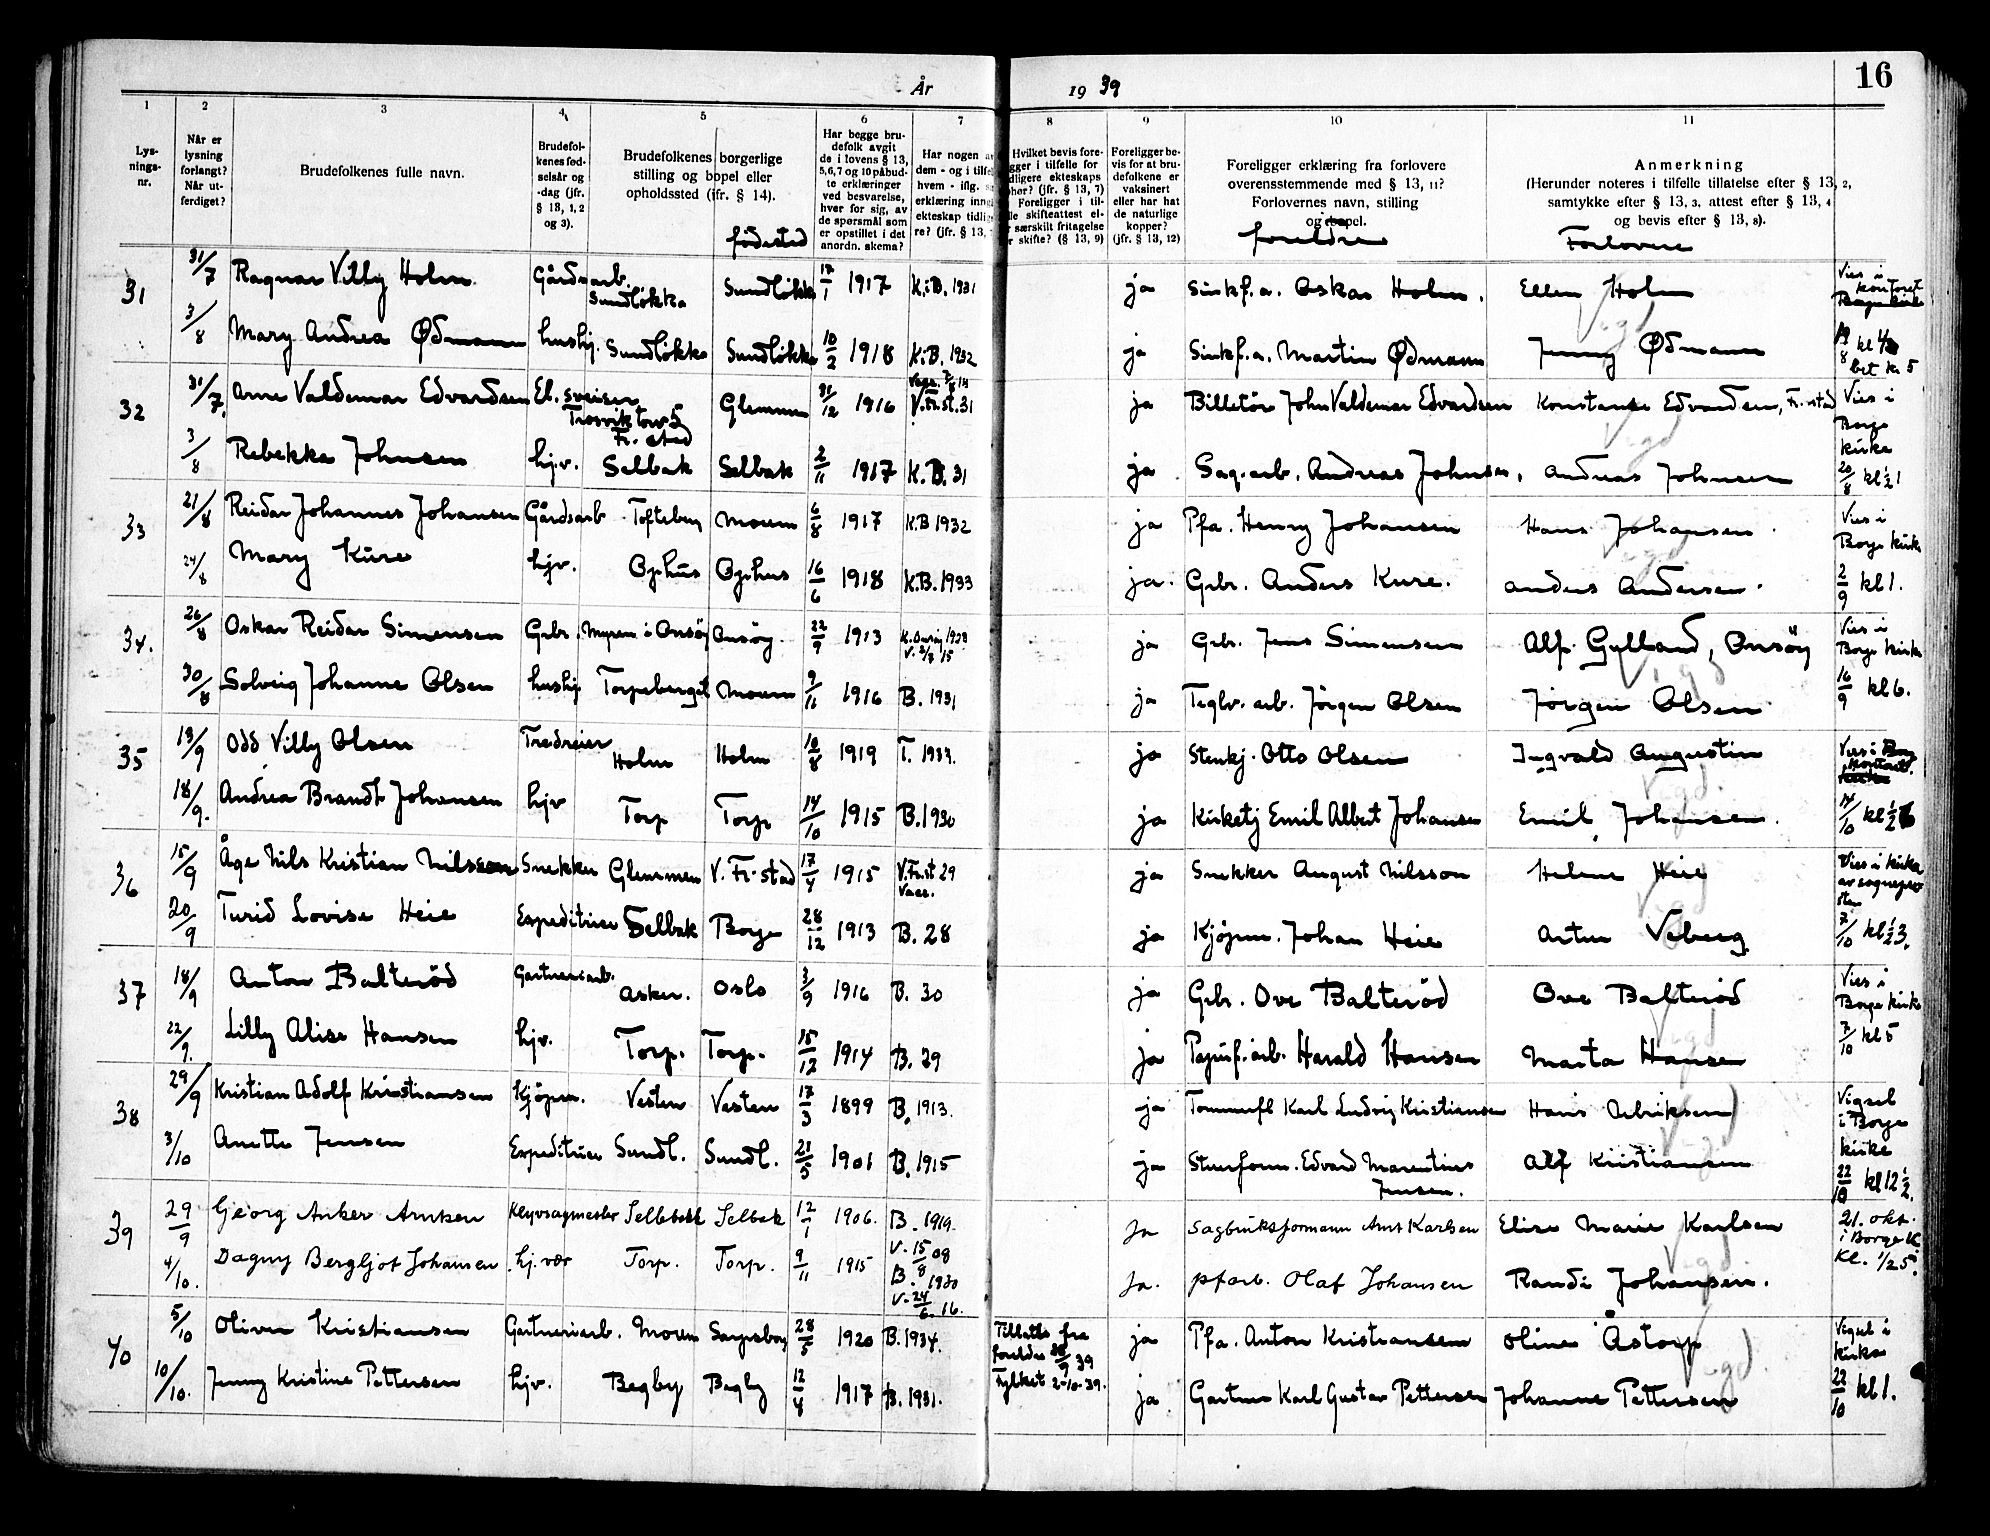 År 1939 16
1 2 3 4 5 6 7 8 9 10 11
Lys-
nings-
nr.
Når er
lysning
forlangt?
Når ut-
ferdiget?
Brudefolkenes fulle navn.
Brudefol-
kenes fød-
selsår og
-dag (jfr.
§ 13, 1, 2
og 3).
Brudefolkenes borgerlige
stilling og bopel eller
opholdssted (jfr. § 14).
födested
Har begge bru-
defolk avgit
de i lovens § 13,
5,6,7 og 10 påbud-
te erklæringer
ved besvarelse,
hver for sig, av
de spørsmål som
er opstillet i det
anordn. skema?
Har nogen av
dem - og i tilfe
hvem - iflg.
erklæring inng
ekteskap tidlig
re? (jfr. § 13,
Hvilket bevis fore-
gger i tilfelle for
dligere ekteskaps
phør? (jfr. § 13, 7)
Foreligger i til-
lle skifteattest el-
r særskilt fritagelse
r skifte? (§ 13, 9)
Foreligger be-
vis for at bru-
defolkene er
vaksinert
eller har hat
de naturlige
kopper?
(jfr. § 13, 12)
Foreligger erklæring fra forlovere
overensstemmende med § 13, 11?
Forlovernes navn, stilling
og bopel.
foreldre
Anmerkning
(Herunder noteres i tilfelle tillatelse efter § 13, 2,
samtykke efter § 13, 3, attest efter § 13, 4
og bevis efter § 13, 8).
Forlovere
31 31/7 Ragnar Villy Holm Gårdsarb. Sundløkka Sundløkka 17/1 1917 K.B. 1931 ja Sinkf.a. Oskar Holm. Ellen Holm Vies i kontoret Borge kirke
3/8 Mary Andrea Ødmann hushj. Sundløkka Sundløkka 10/2 1918 K.B. 1932 ja Sinkf.a. Martin Ødmann Jenny Ødmann bet kr. 5
32 31/7 Arne Valdemar Edvardsen El. sveiser Trosvik Fr.stad Glemmen 31/12 1916 V.Fr.st.31 ja Billetør John Valdemar Edvardsen Konstanse Edvardsen, Fr.stad Vies i Borge kirke
3/8 Rebekka Johnsen hj.v. Selbak Selbak 2/11 1917 K.B. 31 ja Sag.arb. Andreas Johnsen, Andreas Johnsen 20/8 kl ½ 1
33 21/8 Reidar Johannes Johansen Gårdsarb Tofteberg Moum 6/8 1917 K.B 1932 ja Pfa. Henry Johansen Hans Johansen. Vies i Borge kirke
24/8 Mary Kure hjv. Ophus Ophus 16/6 1918 K.B. 1933 ja. Grbr. Anders Kure. Anders Andersen. 2/9 kl 1.
34. 26/8 Oskar Reidar Simensen Grbr. Myren i Onsöy Onsöy. 22/9 1913 ja Grbr. Jens Simensen Alf Gylland, Onsöy Vies i Borge kirke
30/8 Solveig Johanne Olsen hushj. Torpeberget Moum 9/11 1916 B. 1931 ja Teglv. arb. Jörgen Olsen Jörgen Olsen 16/9 kl 6.
35 13/9 Odd Villy Olsen Tredreier Holm Holm 10/8 1919 T. 1933. ja Stenhj. Otto Olsen Ingvald Augustin Vies i
18/9. Andrea Brandt Johansen hjv Torp Torp 14/10 1915 B.1930 ja Kirketj Emil Albert Johansen Emil Johansen. 14/10 kl ½
36 15/9 Åge Nils Kristian Nilsson Snekker Glemmen V. Fr.stad 17/4 1915 V.Fr.st 29 Vacs. ja Snekker August Nilsson Helene Heie Vies i kirke av sogneprosten
20/9 Turid Lovise Heie Expeditrise Selbak Borge 28/12 1913 B. 28 ja Kjöpm. Johan Heie Artur Veberg 7/10 kl ½ 3.
37 18/9 Anton Balteröd Gartneriarb. Asker. Oslo 3/9 1916 B. 30 ja Grbr. Ove Balteröd Ove Balteröd Vies i Borge kirke
22/9. Lilly Alise Hansen hjv. Torp. Torp. 15/12 1914 B. 29 ja Papirf.arb. Harald Hansen Marta Hansen 7/10 kl 5
38 29/9 Kristian Adolf Kristiansen Kjöpm. Vesten Vesten 17/3 1899 B. 1913. ja Tommerfl Karl Ludvig Kristiansen Hans Ulriksen Vigsel i Borge kirke
3/10 Anette Jensen Expeditrise Sundl. Sundl. 21/5 1901 B. 1915 ja Stuerform. Edvard Marentius Jensen. Alf Kristiansen 22/10 kl 12 ½.
39 29/9 Georg Anker Arntzen Kløvsagmester Selbak Selbak 12/1 1906. B. 1919. V. 15/8 08 ja Sagbruksformann Arnt Karlsen Elise Marie Karlsen 21. okt. i Borge K Kl. 1/2 5.
4/10. Dagny Bergljot Johansen hj.vær Torp. Torp. 9/11 1915 B. 1930 V. 24/6 16. ja. pfarb. Olaf Johansen Randi Johansen.
40 5/10 Oliver Kristiansen Gartneriarb. Moum Sarpsborg 28/5 1920 B.1934. Tillatelse fra foreldre 39 Fylket 2-10-39. ja Pfa. Anton Kristiansen Oline Åstorp Vigsel i kirka
10/10. Jenny Kristine Pettersen hjv. Begby Begby 12/4 1917 B. 1931. ja Gartner Karl Gustav Pettersen Johanne Pettersen 22/10 kl 1.